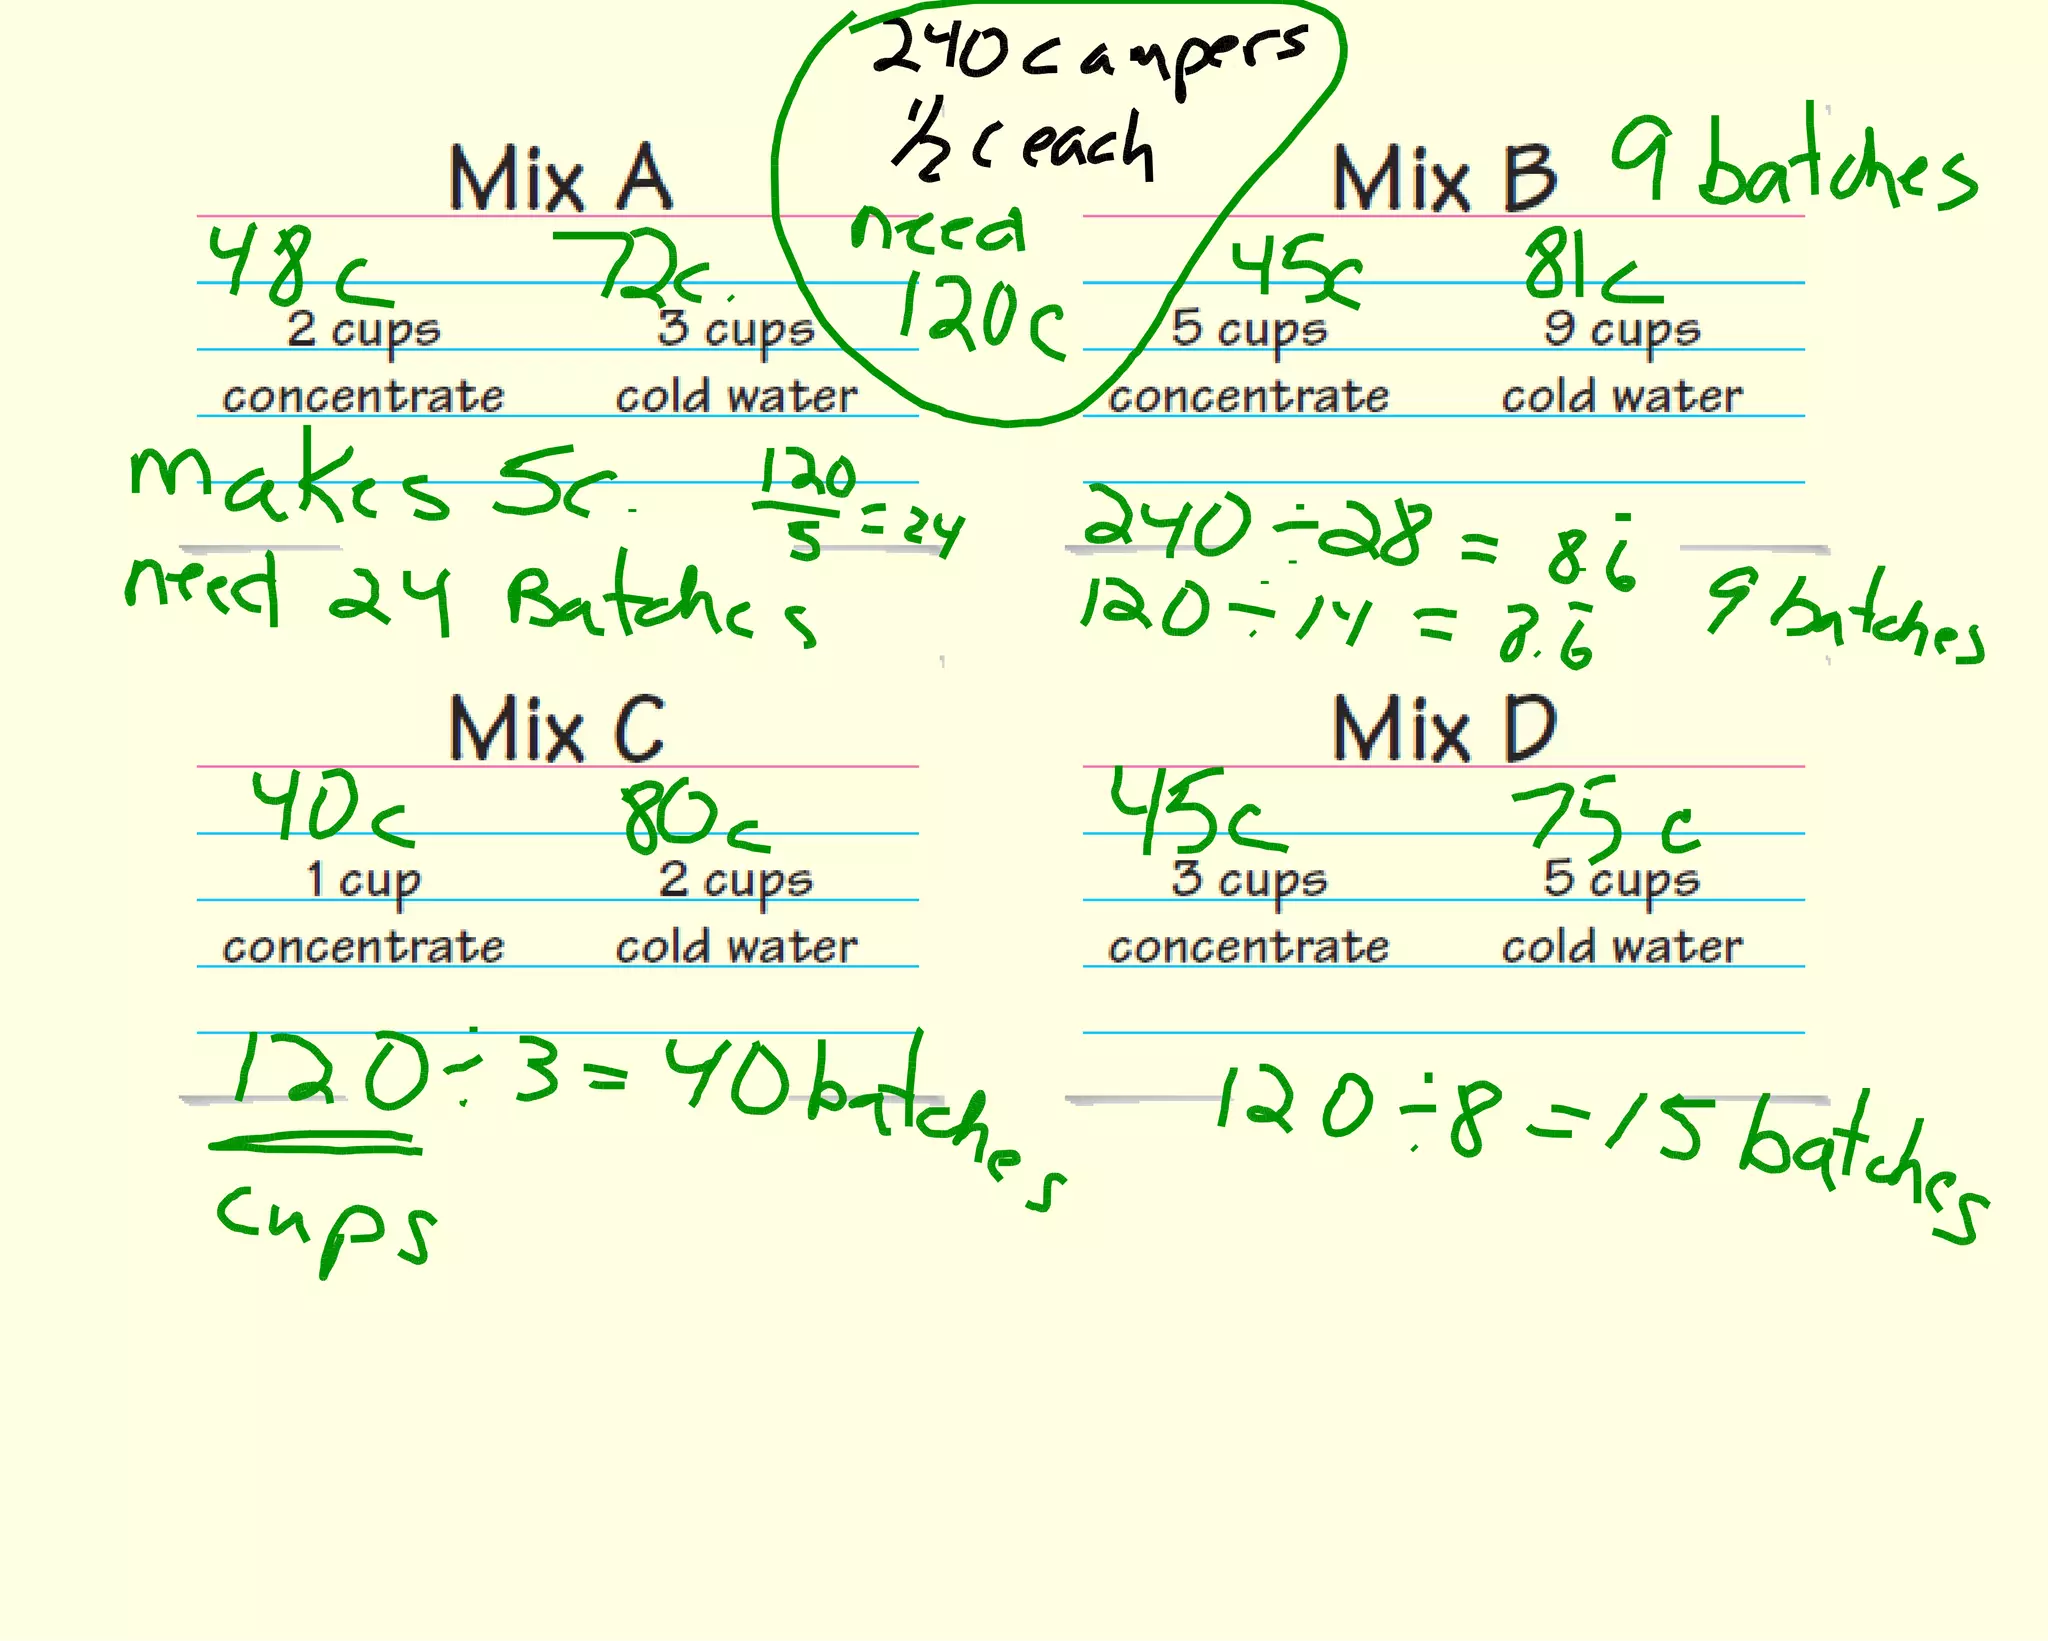 240 campers
1/2 c each
need
120c
Mix A
48c 72c.
2 cups 3 cups
concentrate cold water
makes 5c. 120/5 = 24
need 24 Batches
Mix B 9 batches
45c 81c
5 cups 9 cups
concentrate cold water
240 ÷ 28 = 8.6
120 ÷ 14 = 8.6 9 batches
Mix C
40c 80c
1 cup 2 cups
concentrate cold water
120 ÷ 3 = 40 batches
cups
Mix D
45c 75c
3 cups 5 cups
concentrate cold water
120 ÷ 8 = 15 batches